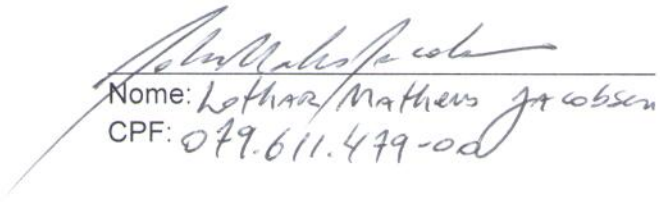 Nome: Lothar Matheus Jacobsen
CPF: 079.611.479-00